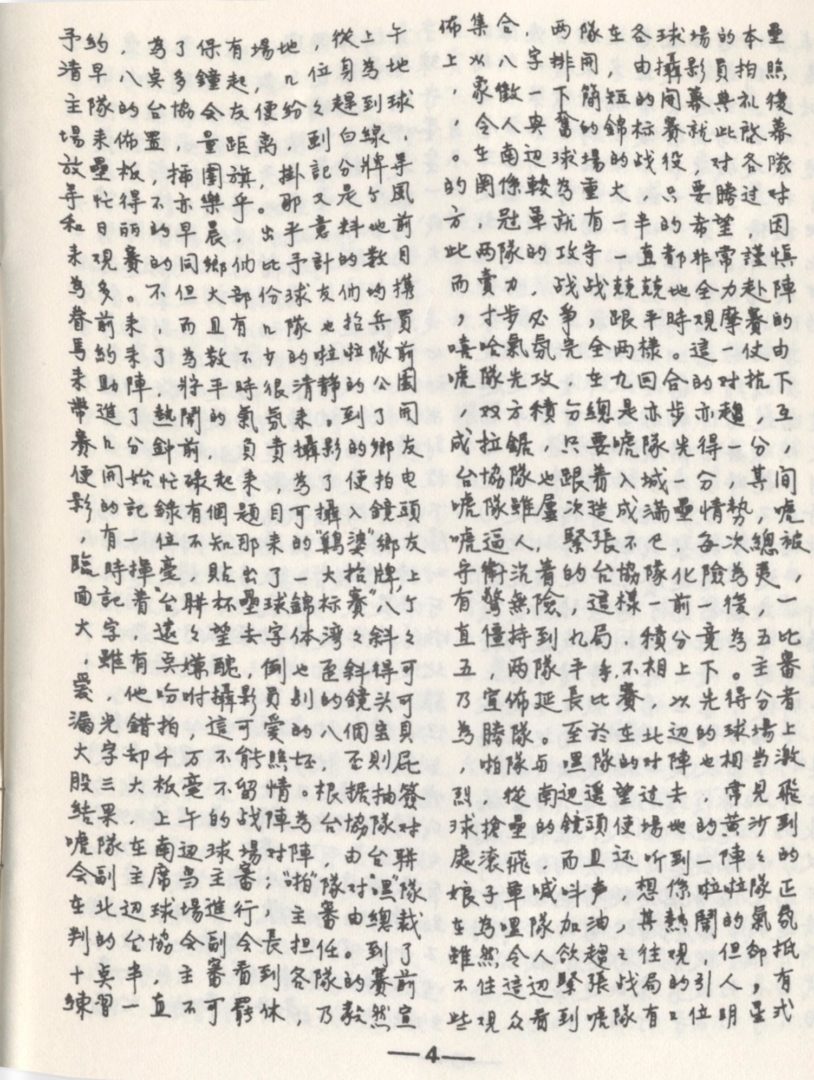 予約，為了保有場地，從上午
清早八点多鐘起，几位身為地
主隊的台協会友便紛々趕到球
場来佈置，量距离，劃白線，
放壘板，插圍旗，掛記分牌等
等忙得不亦樂乎。那又是个風
和日丽的早晨，出乎意料也前
来观賽的同鄉他比予計的数目
為多。不但大部份球友们均携
眷前来，而且有几隊也招兵買
馬約来了為数不少的啦啦隊前
来助陣，將平時很清静的公園
带進了熱鬧的氣氛来。到了開
賽几分針前，負責攝影的鄉友
便開始忙碌起来，為了便拍电
影的記錄有個題目可攝入鏡頭
，有一位不知那来的"鷄婆"鄉友
臨時揮毫，貼出了一大招牌，上
面記着"台联杯壘球錦标賽"八个
大字，遠々望去字体湾々斜々
，雖有点嫌醜，倒也歪斜得可
爱，他吩咐攝影員別的鏡头可
漏光錯拍，這可爱的八個宝貝
大字却千万不能照坯，否則屁
股三大板毫不留情。根据抽簽
結果，上午的战陣為台協隊对
唬隊在南边球場对陣，由台联
会副主席為主審；"啪"隊对"嘿"隊
在北边球場進行，主審由總裁
判的台協会副会長担任。到了
十点半，主審看到各隊的賽前
練習一直不可罷休，乃毅然宣
佈集合，两隊在各球場的本壘
上以八字排開，由攝影員拍照
，象徵一下簡短的開幕典礼後
，令人興奮的錦标賽就此啓幕
。在南边球場的战役，对各隊
的関係較為重大，只要勝过对
方，冠軍就有一半的希望，因
此两隊的攻守一直都非常謹慎
而賣力，战战兢兢地全力赴陣
，寸步必争，跟平時观摩賽的
嘻哈氣氛完全两樣。這一仗由
唬隊先攻，在九回合的对抗下
，双方積分總是亦步亦趨，互
成拉鋸，只要唬隊先得一分，
台協隊也跟着入城一分，其间
唬隊雖屢次造成滿壘情势，唬
唬逼人，緊張不已，每次總被
守衛沉着的台協隊化險為夷，
有驚無險，這樣一前一後，一
直僵持到九局，積分竟為五比
五，两隊平手不相上下。主審
乃宣佈延長比賽，以先得分者
為勝隊。至於在北边的球場上
，啪隊与嘿隊的对陣也相当激
烈，從南边遥望过去，常見飛
球搶壘的鏡頭使場地的黄沙到
處滚飛，而且还听到一陣々的
娘子軍喊叫声，想係啦啦隊正
在為嘿隊加油，其熱鬧的氣氛
雖然令人欲趨之往观，但卻抵
不住這边緊張战局的引人，有
些观众看到唬隊有二位明星式
—4—